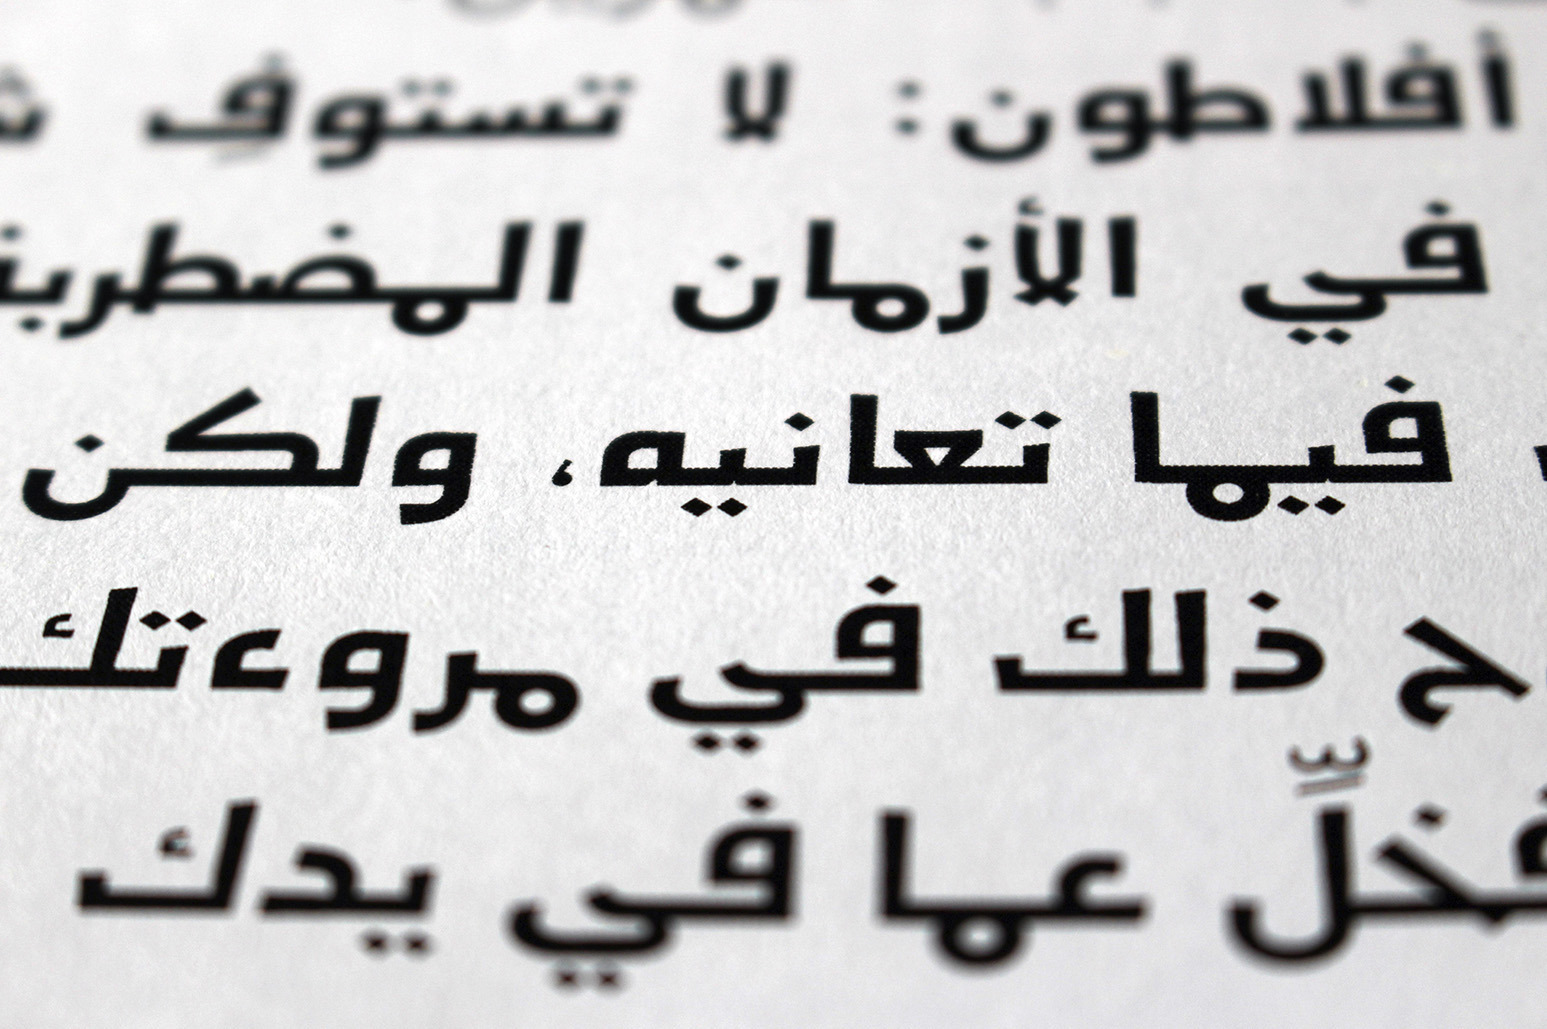 أفلاطون: لا تستوفِ
في الأزمان
فيما تعانيه، ولكن
ذلك في مروءتك
فخلٍّ عما في يدك